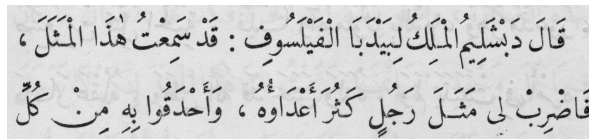 قَالَ دَبْشَلِيمُ الْمَلِكُ لِبَيْدَبَا الْفَيْلَسُوفِ : قَدْ سَمِعْتُ هٰذَا الْمَثَلَ ،
فَاضْرِبْ لِى مَثَلَ رَجُلٍ كَثُرَ أَعْدَاؤُهُ ، وَأَحْدَقُوا بِهِ مِنْ كُلِّ